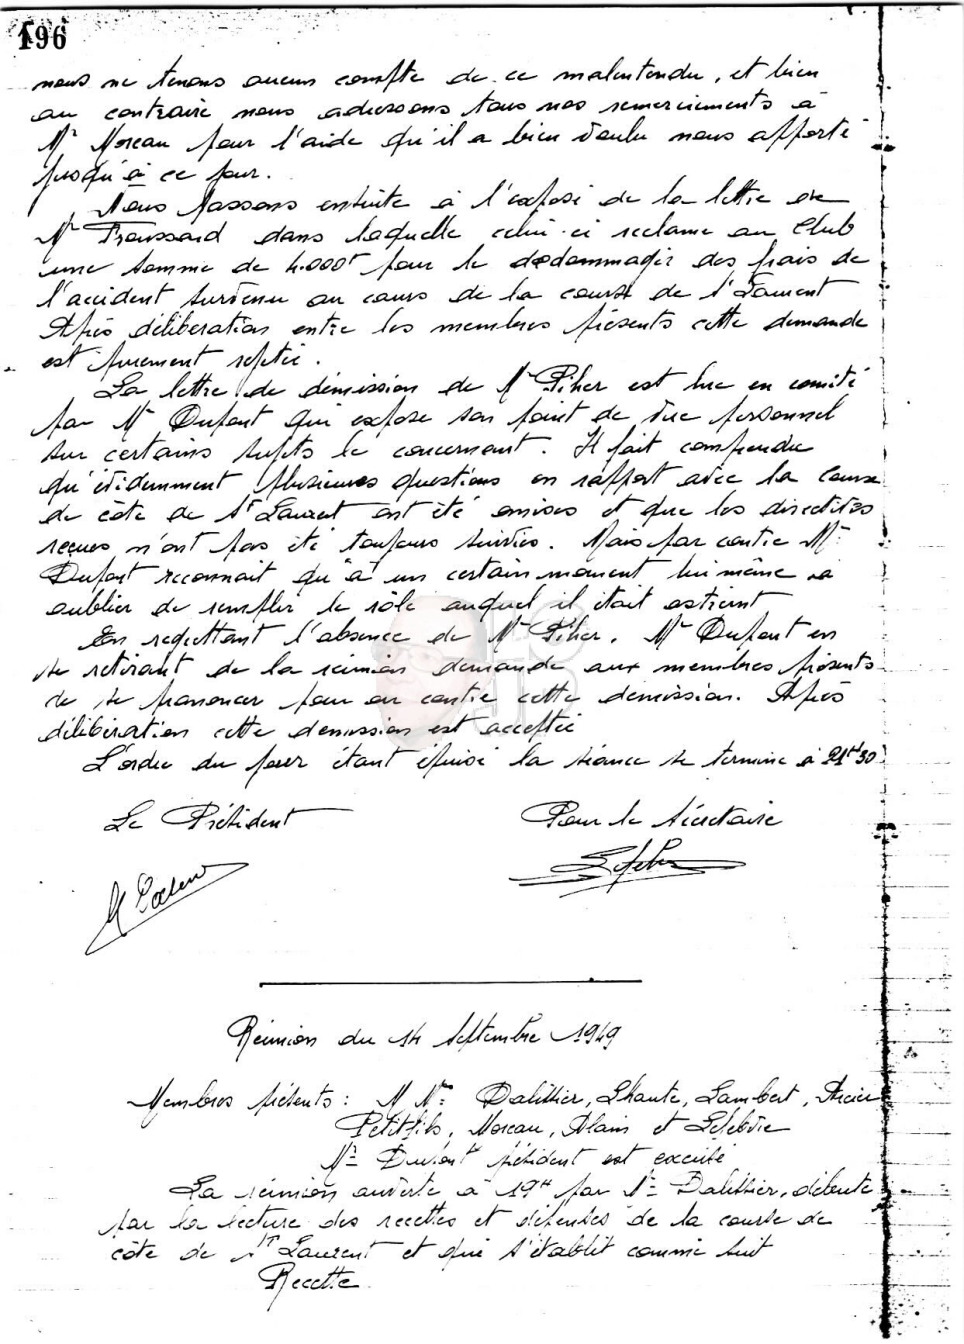 196
nous ne tenons aucun compte de ce malentendu, et bien
au contraire nous adressons tous nos remerciements à
Mr Moreau pour l'aide qu'il a bien voulu nous apporté
jusqu'à ce jour.
Nous passons ensuite à l'exposé de la lettre de
Mr Troussard dans laquelle celui-ci reclame au Club
une somme de 4.000f pour le dédommager des frais de
l'accident survenu au cours de la course de St Laurent
Après déliberation entre les membres présents cette demande
est purement rejetée.
La lettre de démission de Mr Piher est lue en comité
par Mr Dupont qui expose son point de vue personnel
sur certains sujets le concernant. Il fait comprendre
qu'évidemment plusieures questions en rapport avec la course
de côte de St Laurent ont été omises et que les directives
reçues n'ont pas été toujours suivies. Mais par contre Mr
Dupont reconnait qu'à un certain moment lui même a
oublier de remplir le rôle auquel il était astreint
En regrettant l'absence de Mr Piher, Mr Dupont en
se retirant de la réunion demande aux membres présents
de se prononcer pour ou contre cette démission. Après
déliberation cette démission est acceptée
L'ordre du jour étant épuisé la séance se termine à 21H30
Le Président
Pour le Sécretaire
Réunion du 14 Septembre 1949
Membres présents : M Mrs Dalissier, Lhaute, Lambert,
Petitfils, Moreau, Alain et Lefebvre
Mr Dupont président est excusé
La réunion ouverte à 19H par Mr Dalissier, débute
par la lecture des recettes et dépenses de la course de
côte de St Laurent et qui s'établit comme suit
Recette